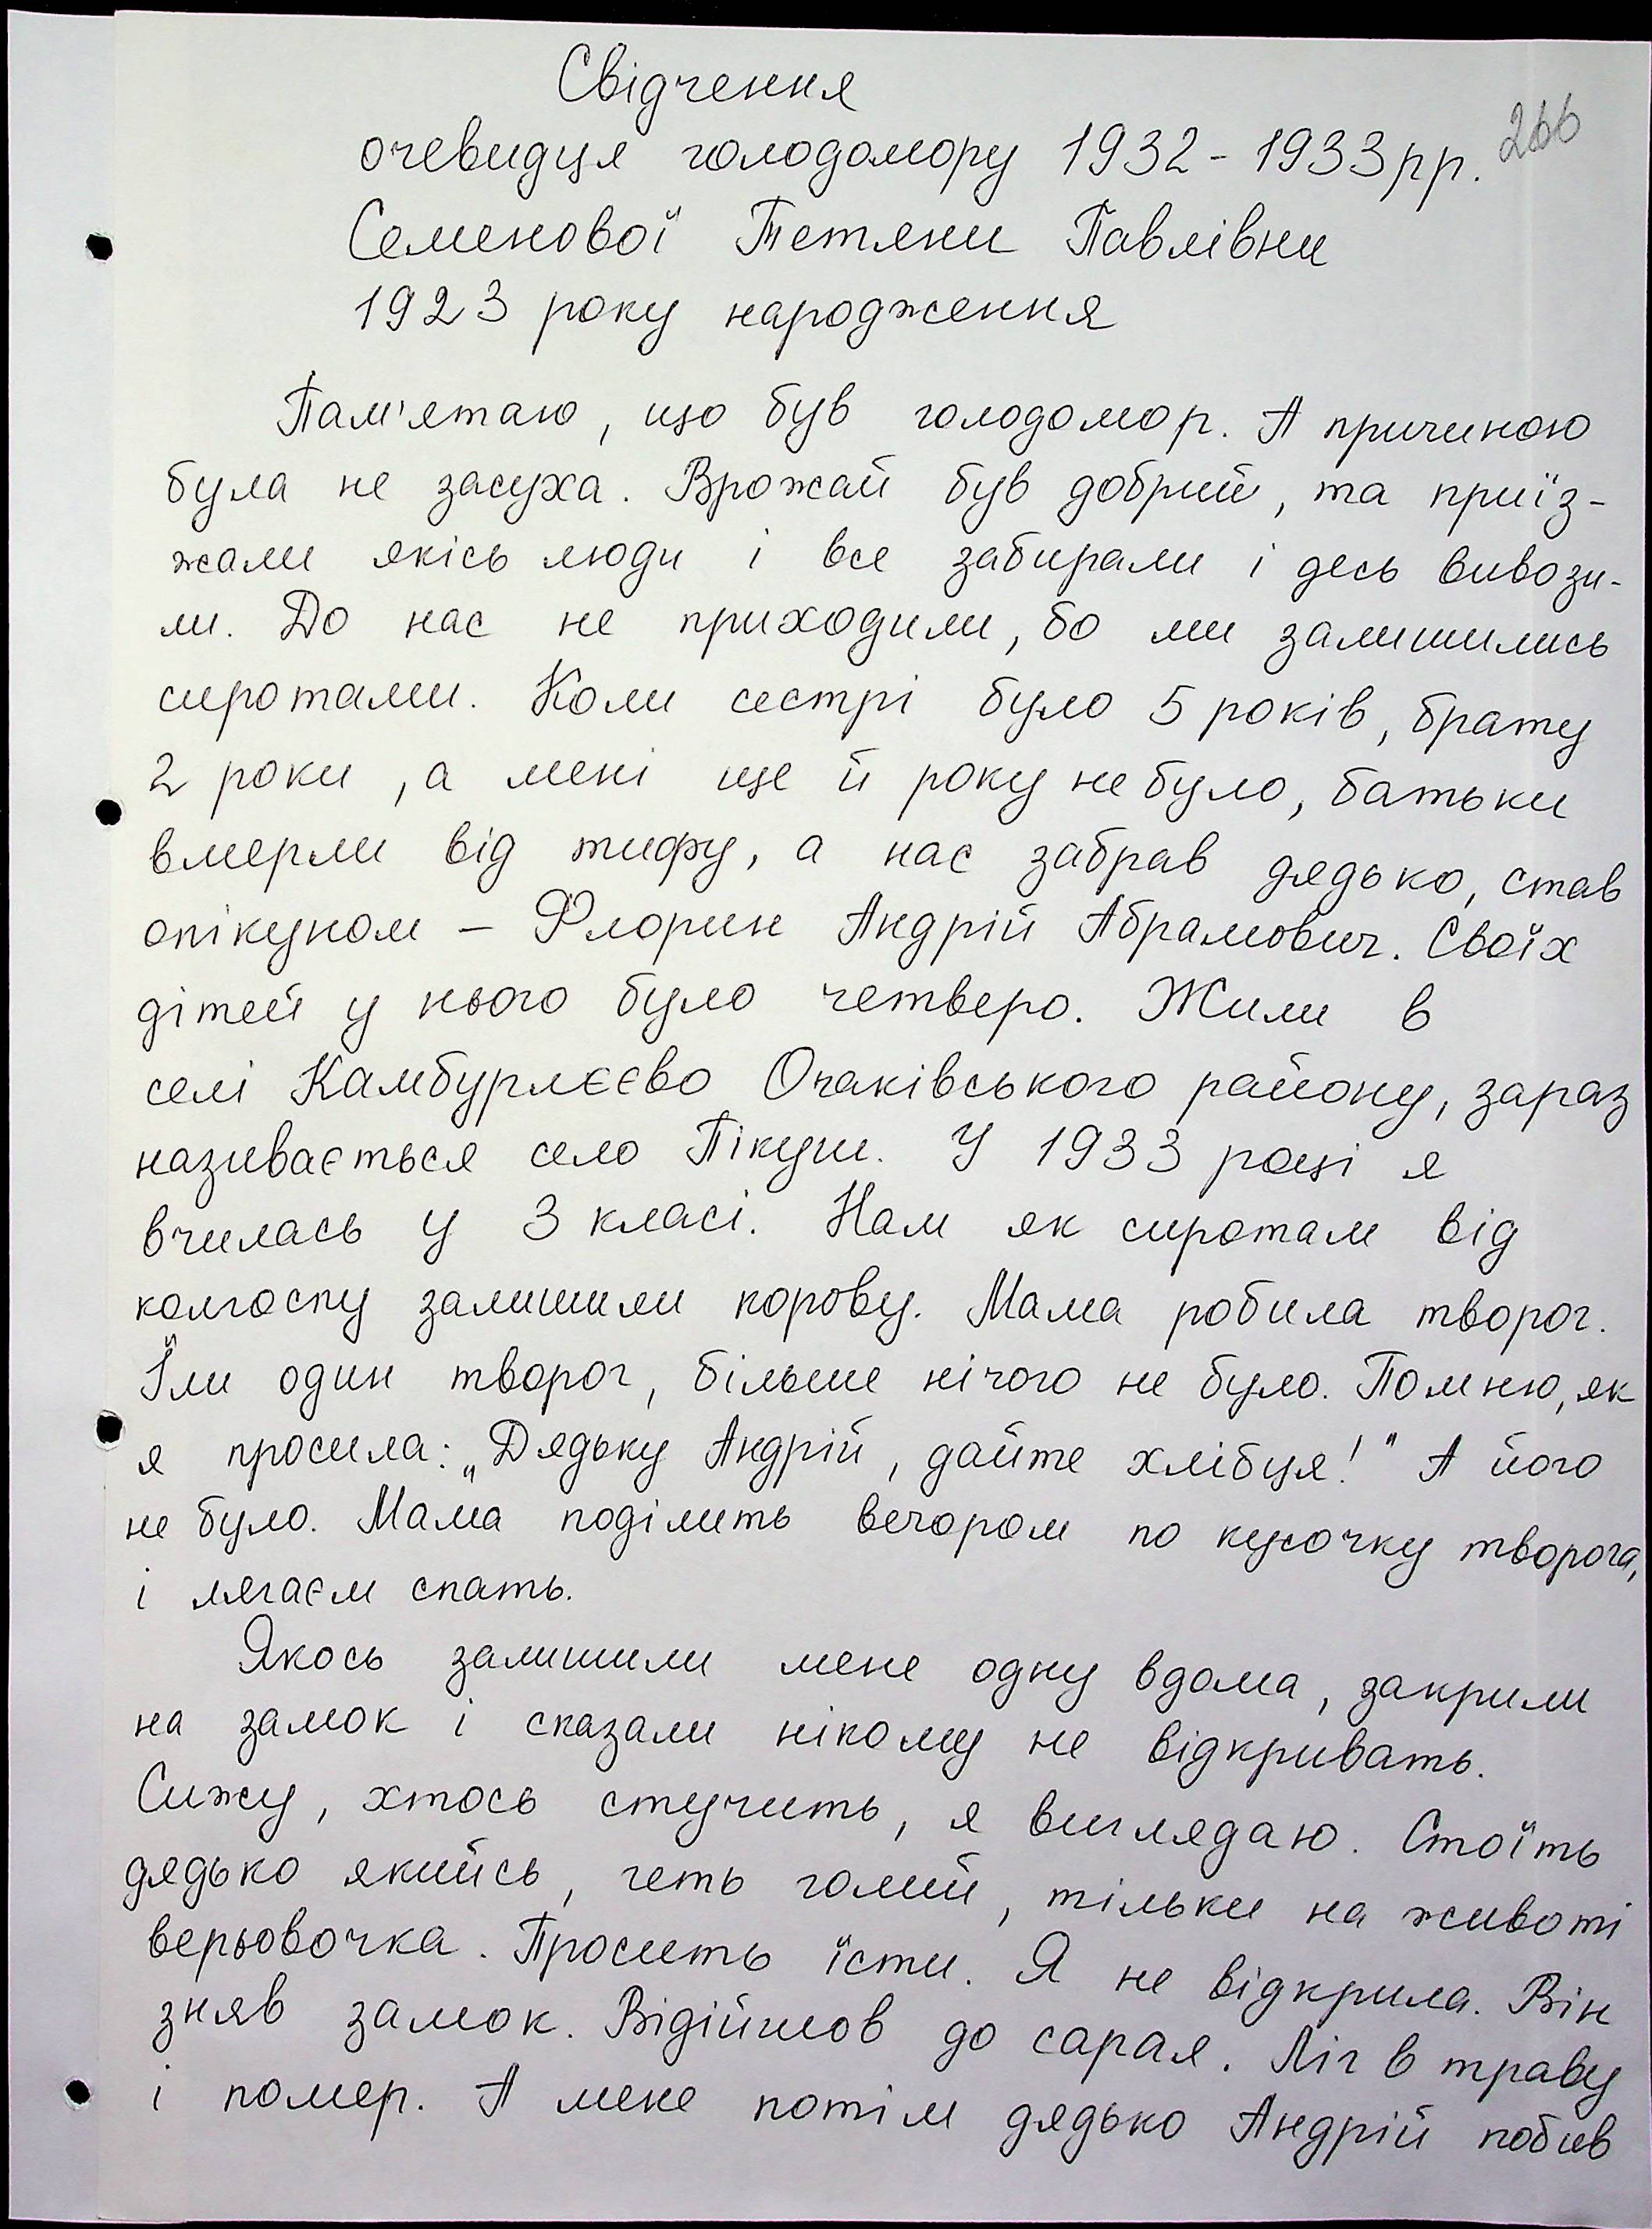 Свідчення
очевидця голодомору 1932 - 1933 рр.
266
Семенової Тетяни Павлівни
1923 року народження
Пам'ятаю, що був голодомор. А причиною
була не засуха. Врожай був добрий, та приїз-
жали якісь люди і все забирали і десь вивози-
ли. До нас не приходили, бо ми залишились
сиротами. Коли сестрі було 5 років, брату
2 роки, а мені ще й року не було, батьки
вмерли від тифу, а нас забрав дядько, став
опікуном – Флорин Андрій Абрамович. Своїх
дітей у нього було четверо. Жили в
селі Камбурлєєво Очаківського району, зараз
називається село Пікуши. У 1933 році я
вчилась у 3 класі. Нам як сиротам від
колгоспу залишили корову. Мама робила творог.
Їли один творог, більше нічого не було. Помню, як
я просила: „Дядьку Андрій, дайте хлібця!" А його
не було. Мама поділить вечором по кусочку творога,
і лягаєм спать.
Якось залишили мене одну вдома, закрили
на замок і сказали нікому не відкривать.
Сижу, хтось стучить, я виглядаю. Стоїть
дядько якийсь, геть голий, тільки на животі
верьовочка. Просить їсти. Я не відкрила. Він
зняв замок. Відійшов до сарая. Ліг в траву
і помер. А мене потім дядько Андрій побив